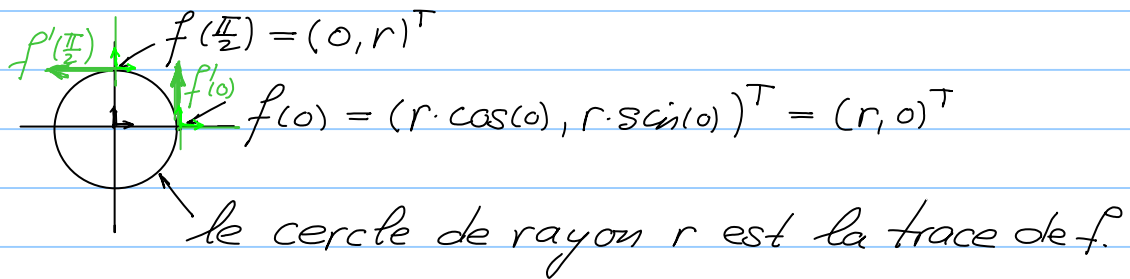 f(π/2) = (0, r)ᵀ
f'(π/2)
f'(0)
f(0) = (r·cos(0), r·sin(0))ᵀ = (r, 0)ᵀ
le cercle de rayon r est la trace de f.